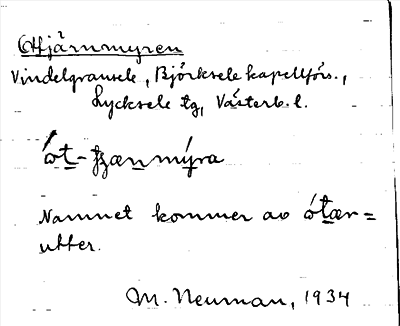 Otjärnmyren
Vindelgransele, Björksele kapellförs.,
Lycksele tg, Västerb. l.
ót-ʃænmýra
Namnet kommer av ótær=
utter.
M. Neuman, 1934